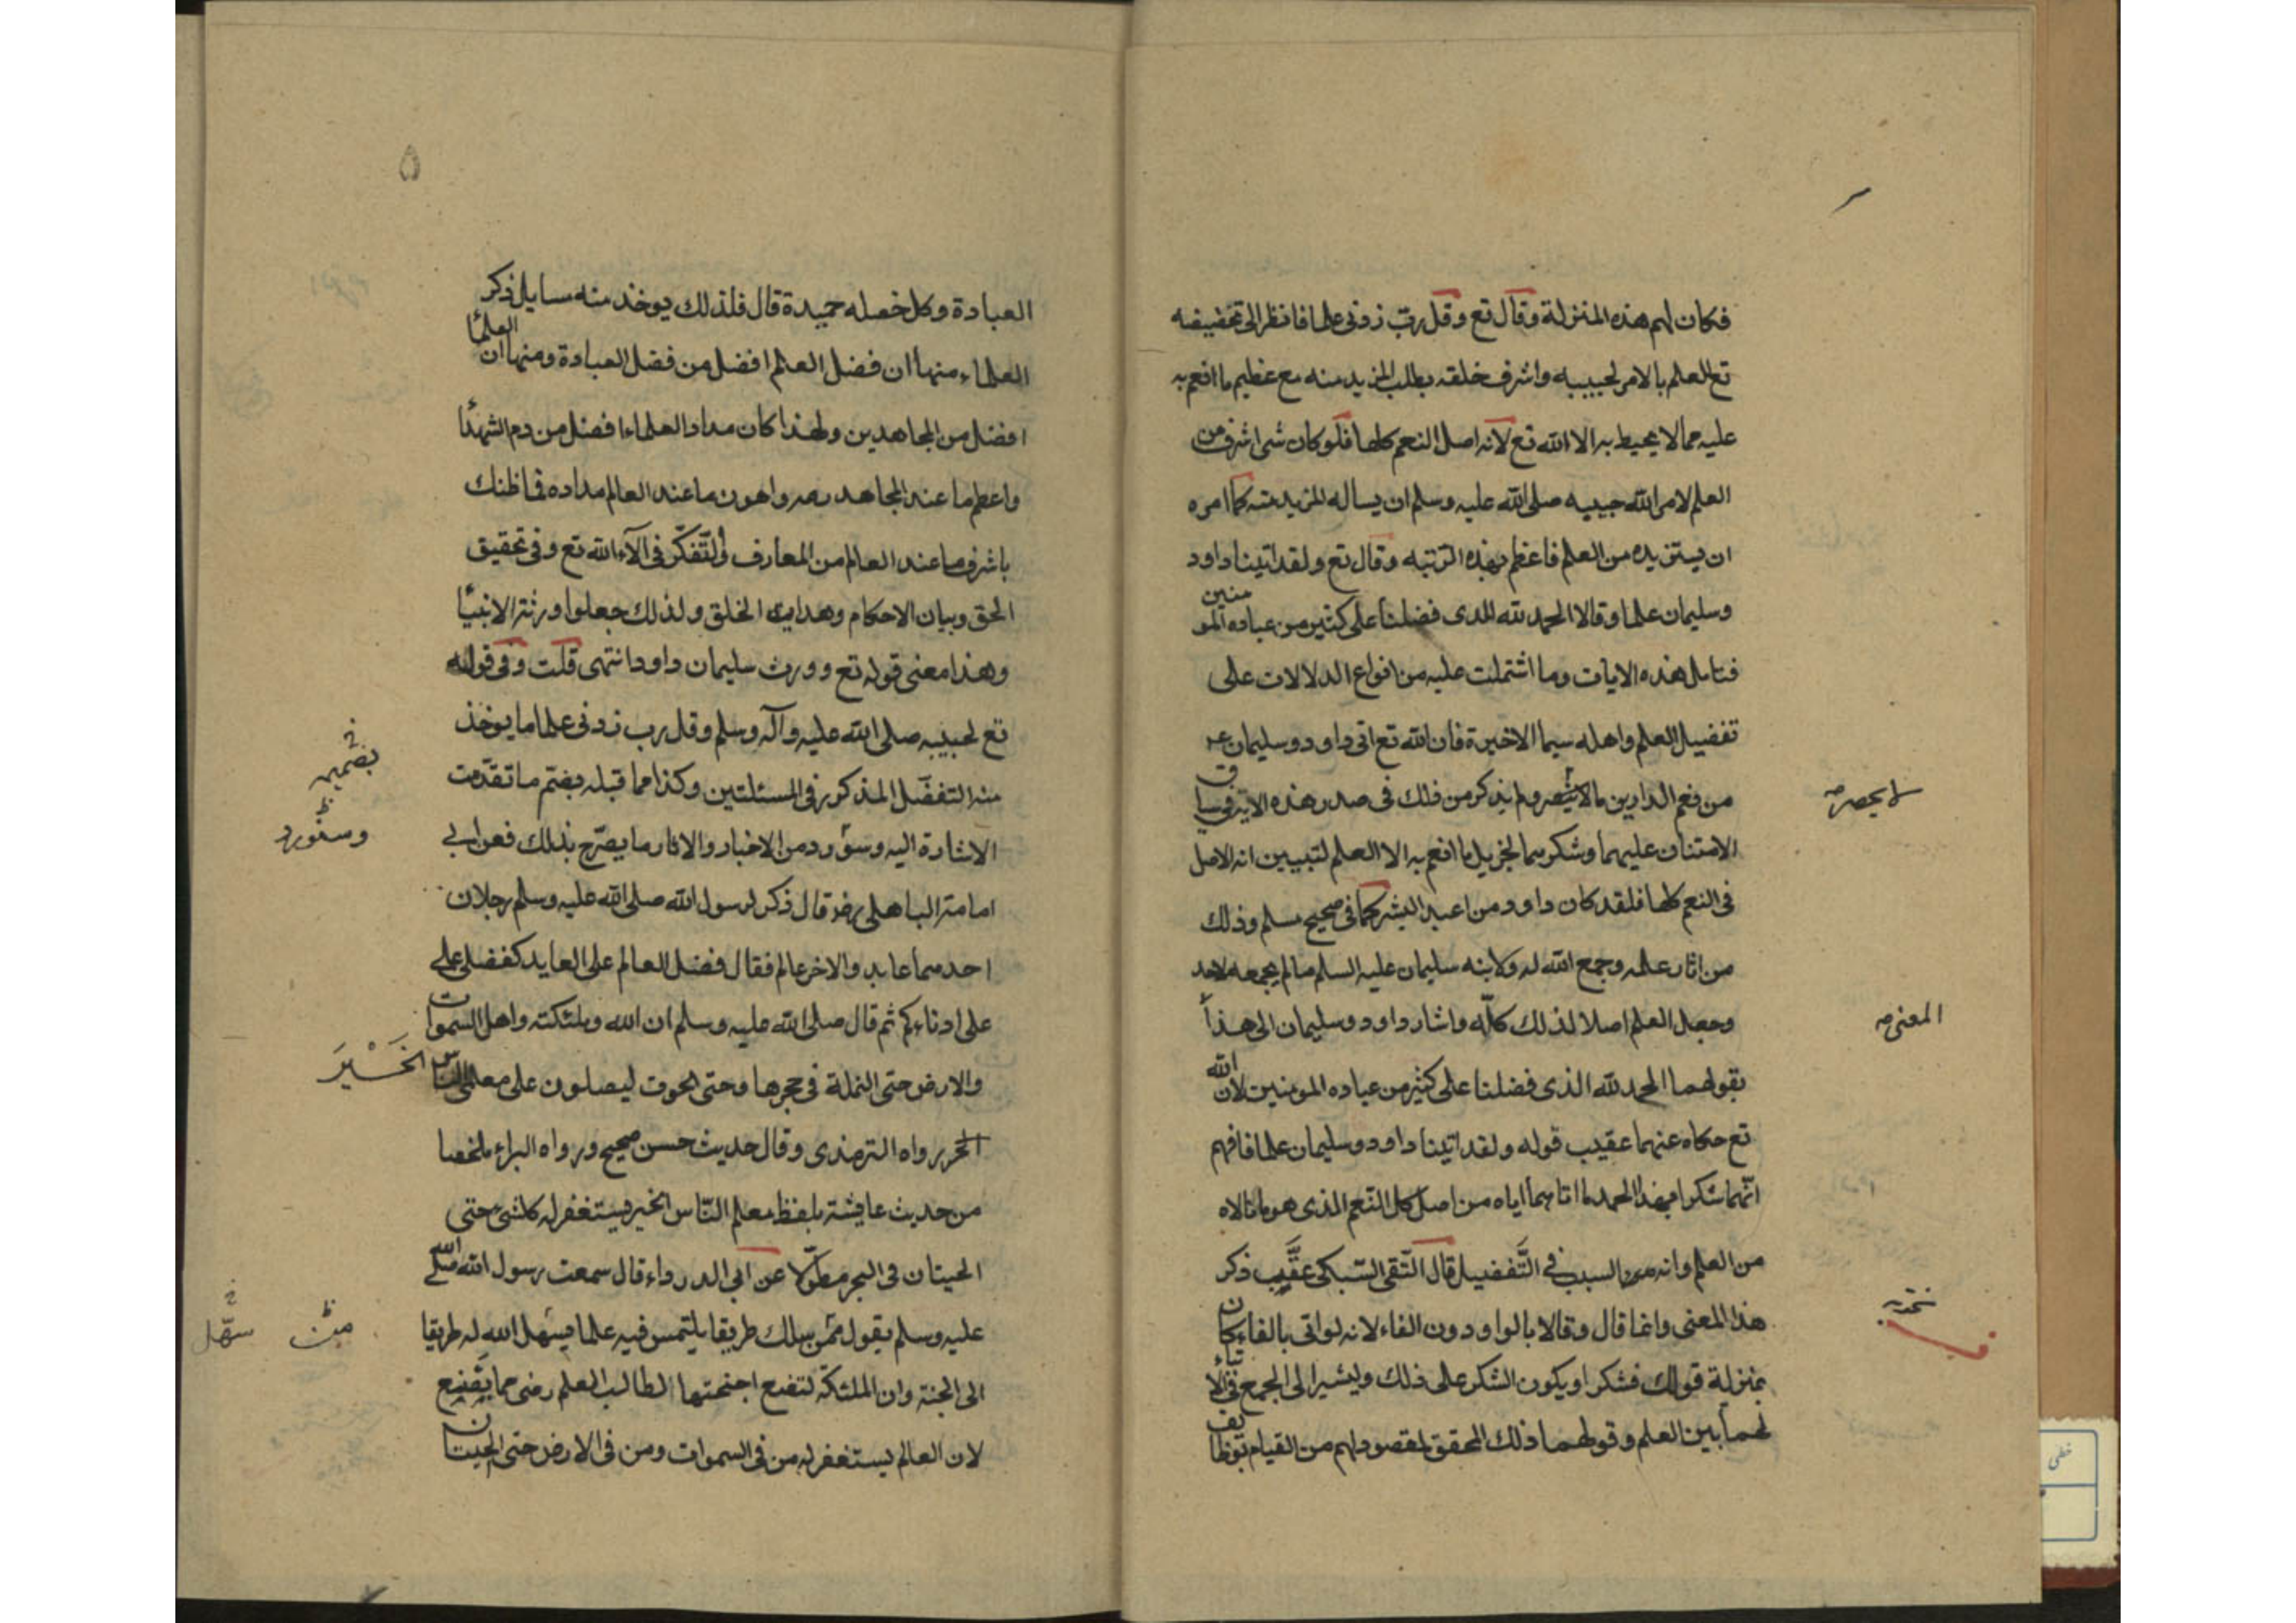 فكان لهم هذه المنزلة وقال تع وقل رب زدنى علما فانظر الى تخفيفه
تع للعلم بالامر لحبيبه واشرف خلقه بطلب المزيد منه مع عظيم ما انعم به
عليه مما لا يحيط به الا الله تع لانه اصل النعم كلها فلو كان شى اشرف من
العلم لامر الله حبيبه صلى الله عليه وسلم ان يساله المزيد منه كما امره
ان يستزيده من العلم فاعظم بهذه الرتبه وقال تع ولقد اتينا داود
وسليمان علما وقالا الحمد لله الذى فضلنا على كثير من عباده المومنين
فتامل هذه الايات وما اشتملت عليه من انواع الدلالات على
تفضيل العلم واهله سيما الاخيرة فان الله تع اتى داود وسليمان عم
من نعم الدارين ما لا ينحصر ولم يذكر من ذلك فى صدر هذه الاية فى سياق
لا يحصر صه
الامتنان عليهما وشكرهما لجزيل ما انعم به الا العلم لتبيين انه الاصل
فى النعم كلها فلقد كان داود من اعبد البشر كما فى صحيح مسلم وذلك
من اثار علمه وجمع الله له ولابنه سليمان عليه السلم ما لم يجمعه لاحد
وجعل العلم اصلا لذلك كله واشار داود وسليمان الى هذا
المعنى صه
بقولهما الحمد لله الذى فضلنا على كثير من عباده المومنين لان الله
تع حكاه عنهما عقيب قوله ولقد اتينا داود وسليمان علما فافهم
انهما شكرا بهذا الحمد ما اتاهما اياه من اصل كل النعم الذى هو ما نالاه
من العلم وانه السبب فى التفضيل قال التقى السبكى عقيب ذكر
هذا المعنى وانما قال وقالا بالواو دون الفاء لانه لو اتى بالفاء كان
بمنزلة قولك فشكر او يكون الشكر على ذلك وليشير الى الجمع
لهما بين العلم وقولهما ذلك المحقق لمقصودهم من القيام بوظايف
۵
العبادة وكل خصله حميدة قال فلذلك يوخذ منه مسايل ذكر
العلماء منها ان فضل العلم افضل من فضل العبادة ومنها ان العلما
افضل من المجاهدين ولهذا كان مداد العلماء افضل من دم الشهدا
واعظم ما عند المجاهد دمه واهون ما عند العالم مداده فما ظنك
باشرف ما عند العالم من المعارف والتفكر فى آلاء الله تع وفى تحقيق
الحق وبيان الاحكام وهداية الخلق ولذلك جعلوا ورثة الانبيا
وهذا معنى قوله تع وورث سليمان داود انتهى قلت وفى قوله
تع لحبيبه صلى الله عليه وآله وسلم وقل رب زدنى علما ما يوخذ
منه التفضل المذكور فى المسئلتين وكذا مما قبله بضم ما تقدمت
بضميمه
الاشارة اليه وسنورد من الاخبار والاثار ما يصرح بذلك فعن ابى
وسنورد
امامة الباهلى رضه قال ذكر لرسول الله صلى الله عليه وسلم رجلان
احدهما عابد والاخر عالم فقال فضل العالم على العابد كفضلى على
على ادناءكم ثم قال صلى الله عليه وسلم ان الله وملئكته واهل السموات
والارض حتى النملة فى حجرها وحتى الحوت ليصلون على معلمى الناس
الخَيْرَ
الخير رواه الترمذى وقال حديث حسن صحيح ورواه البراء ملخصا
من حديث عايشة بلفظ معلم الناس الخير يستغفر له كل شىء حتى
الحيتان فى البحر مطولا عن ابى الدرداء قال سمعت رسول الله صلى الله
عليه وسلم يقول من سلك طريقا يلتمس فيه علما يسهل الله له طريقا
من
سهّل
الى الجنة وان الملئكة لتضع اجنحتها لطالب العلم رضى مما يصنع
لان العالم يستغفر له من فى السموات ومن فى الارض حتى الحيتان
خطى